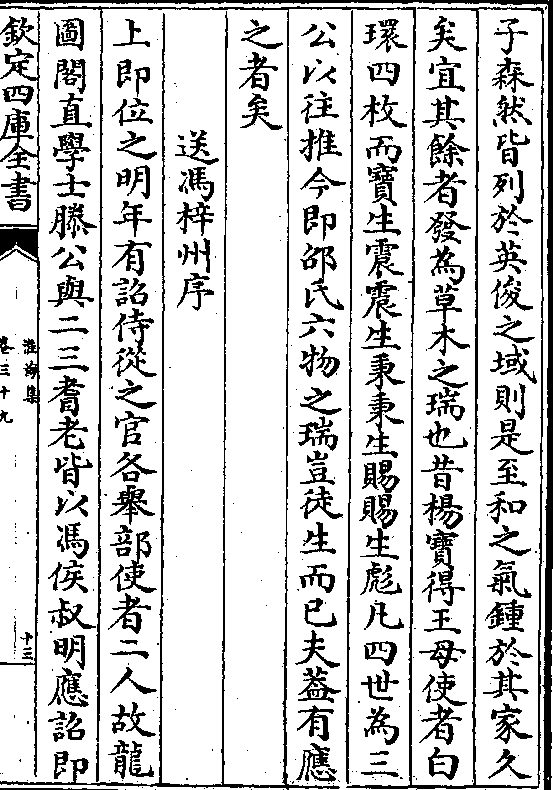 子森然皆列於英俊之域則是至和之氣鍾於其家久
矣宜其餘者發為草木之瑞也昔楊寶得王母使者白
環四枚而寶生震震生秉秉生賜賜生彪凡四世為三
公以往推今即邵氏六物之瑞豈徒生而已夫蓋有應
之者矣
送馮梓州序
上即位之明年有詔侍從之官各舉部使者二人故龍
圖閣直學士滕公與二三耆老皆以馮侯叔明應詔即
欽定四庫全書
淮海集
卷三十九
十三